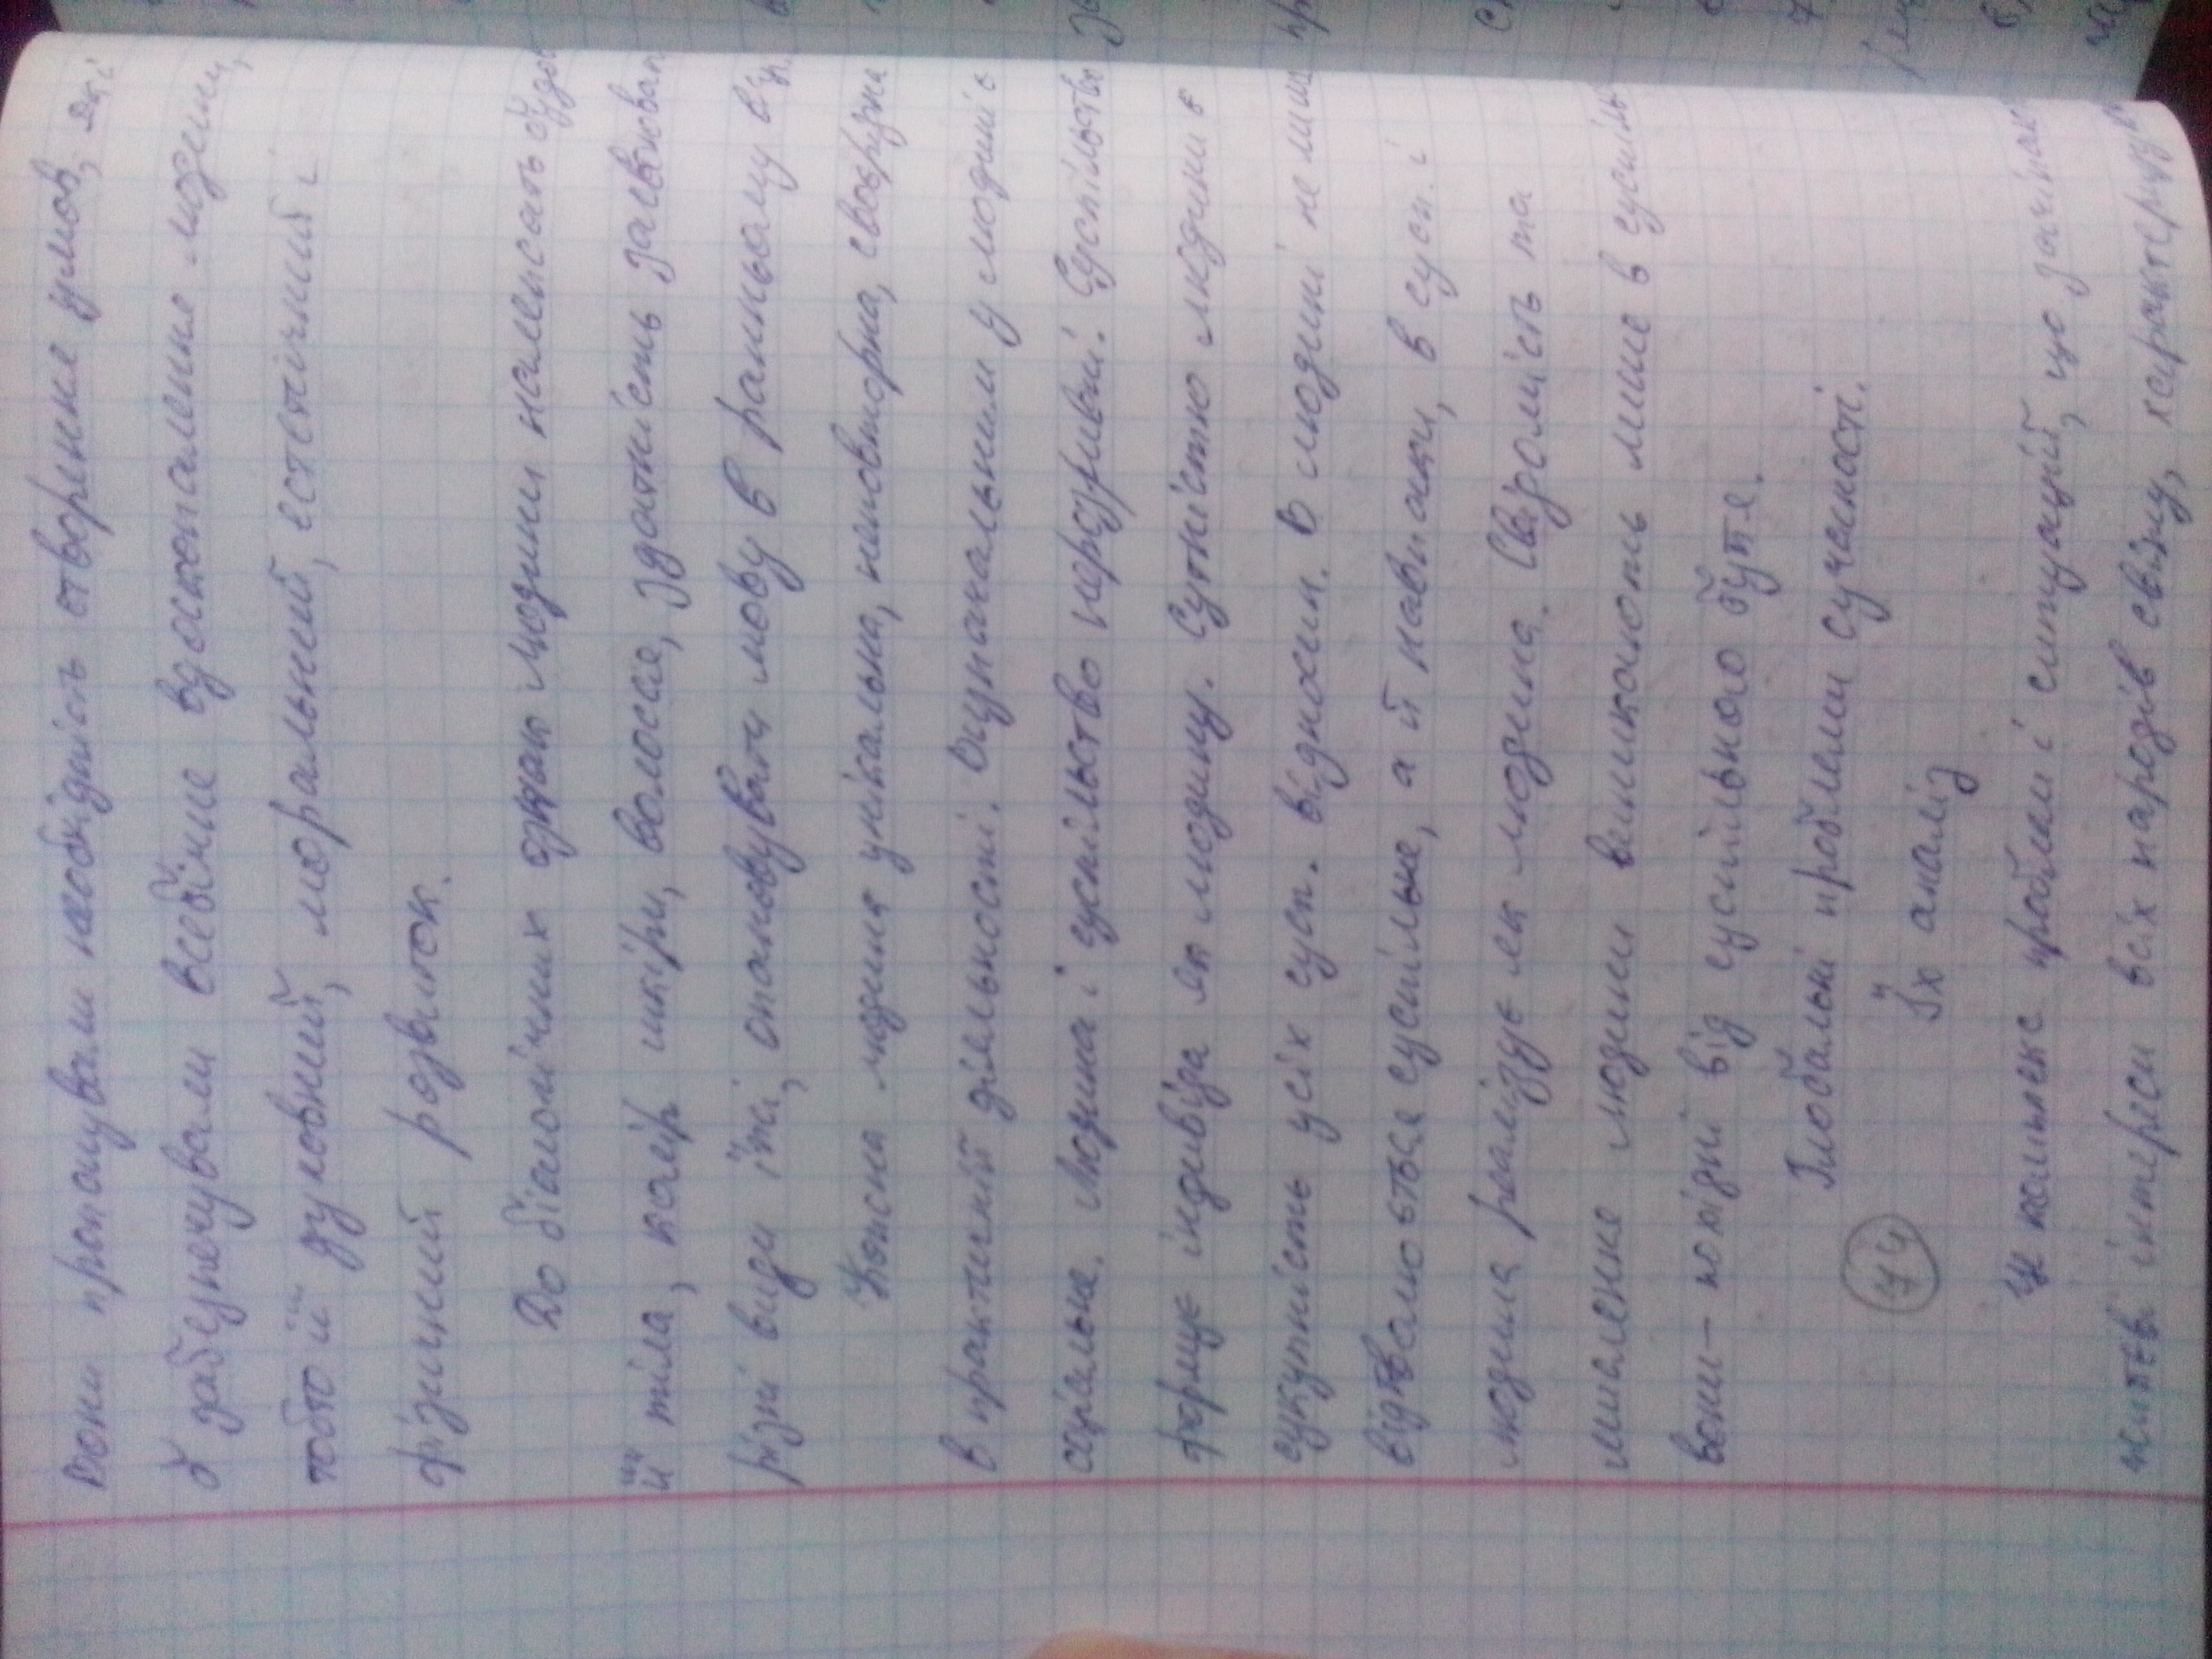 вони пропонували необхідність створення умов, які
б забезпечували всебічне вдосконалення людини,
тобто її духовний, моральний, естетичний і
фізичний розвиток.
До біологічних ознак людини належать будов
її тіла, колір шкіри, волосся, здатність засвоюват
різні види їжі, опановувати мову в ранньому віці.
Кожна людина унікальна, неповторна, своєрідна
в практичній діяльності. Визначальним у людині є
соціальне. Людина і суспільство нерозривні. Суспільство
формує індивіда як людину. Сутністю людини є
сукупність усіх сусп. відносин. В людині не лише
відтворюється суспільне, а й навпаки, в сусп. і
людина реалізує як людина. Свідомість та
мислення людини виникають лише в суспільс
вони – похідні від суспільного буття.
Глобальні проблеми сучасності.
74
Їх аналіз
Це комплекс проблем і ситуацій, що зачіпают
життєві інтереси всіх народів світу, характеризую